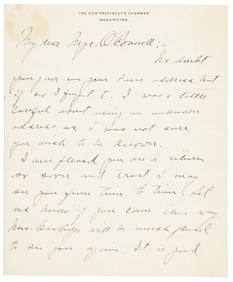 THE VICE-PRESIDENT'S CHAMBER
WASHINGTON
My dear Mrs. O'Connell:-
No doubt
you gave me your Paris address but
if so I forgot it. I was a little
careful about using an unknown
address as I was not sure
you wish to be known.
I am pleased you are to return
so soon and trust I may
see you from time to time. Let
us know if you come this way
Mrs. will be much pleased
to see you again. It is good